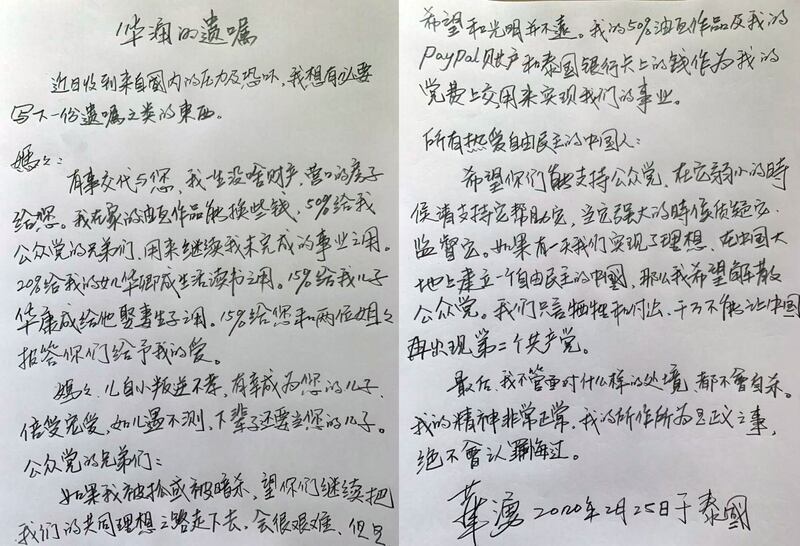 华涌的遺嘱
近日收到来自國内的压力及恐吓,我想有必要
写下一份遺嘱之类的東西。
媽々:
有事交代与您,我一生没啥财产,营口的房子
给您。我在家的油画作品能换些钱,50%给我
公众党的兄弟们,用来继续我未完成的事业之用。
20%给我的女儿华卿成生活读书之用。15%给我儿子
华康成给他娶妻生子之用。15%给您和两位姐々
报答你们给予我的爱。
媽々,儿自小叛逆不孝,有幸成为您的儿子,
倍受宠爱,如儿遇不测,下辈子还要当您的儿子。
公众党的兄弟们:
如果我被抓或被暗杀,望你们继续把
我们的共同理想之路走下去,会很艰难,但是
希望和光明并不遠。我的50%油画作品及我的
PayPal财产和泰国银行卡上的钱作为我的
党费上交用来实现我们的事业。
所有热爱自由民主的中国人:
希望你们能支持公众党,在它弱小的時
侯请支持它帮助它,当它强大的時候质疑它
监督它。如果有一天我们实现了理想,在中国大
地上建立一个自由民主的中國,那么我希望解散
公众党。我们只言牺牲和付出,千万不能让中国
再出现第二个共产党。
最后,我不管面对什么样的处境,都不會自杀。
我的精神非常正常,我的所作所为是正义之事,
绝不會认罪悔过。
華湧 2020年2月25日于泰國